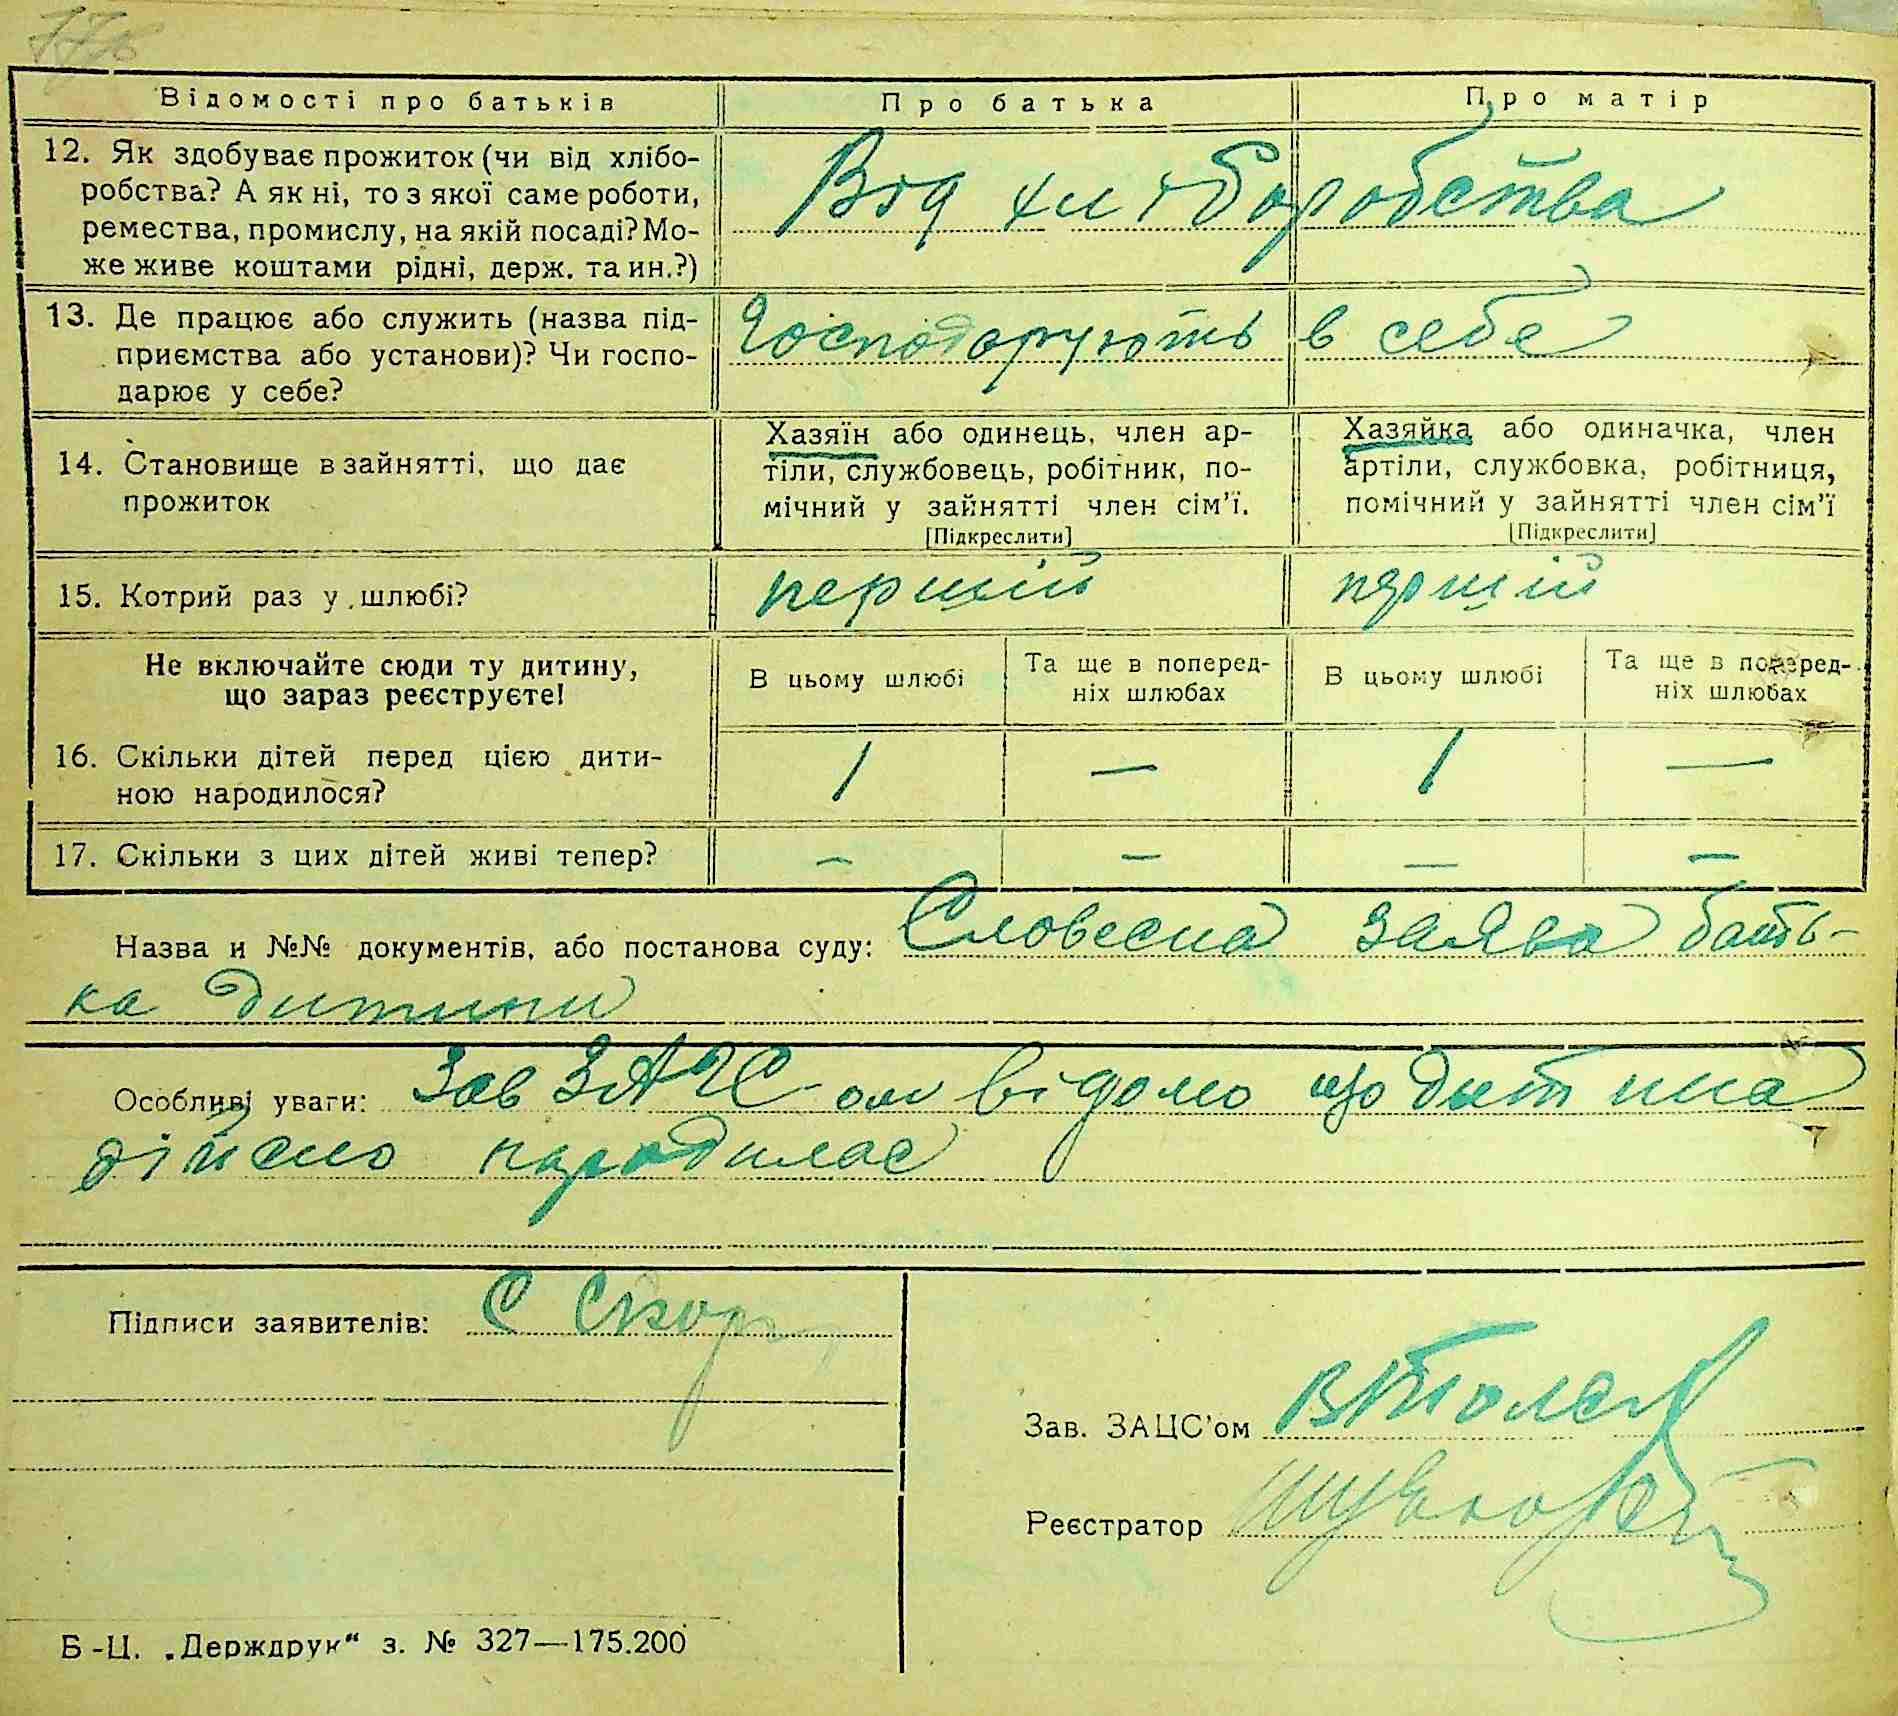 Відомості про батьків
Про батька
Про матір
12. Як здобуває прожиток (чи від хлібо-
робства? А як ні, то з якої саме роботи,
ремества, промислу, на якій посаді? Мо-
же живе коштами рідні, держ. та ин.?)
Від хліборобства
13. Де працює або служить (назва під-
приємства або установи)? Чи госпо-
дарює у себе?
Господарують в себе
14. Становище в зайнятті, що дає
прожиток
Хазяїн або одинець, член ар-
тіли, службовець, робітник, по-
мічний у зайнятті член сім'ї.
[Підкреслити]
Хазяйка або одиначка, член
артіли, службовка, робітниця,
помічний у зайнятті член сім'ї
[Підкреслити]
15. Котрий раз у шлюбі?
перший
перший
Не включайте сюди ту дитину,
що зараз реєструєте!
В цьому шлюбі
Та ще в поперед-
ніх шлюбах
В цьому шлюбі
Та ще в поперед-
ніх шлюбах
16. Скільки дітей перед цією дити-
ною народилося?
1 — 1 —
17. Скільки з цих дітей живі тепер?
— — — —
Назва и №№ документів, або постанова суду: Словесна заява бать-
ка дитини
Особливі уваги: Зав ЗАЦС-ом відомо що дитина
дійсно народилас
Підписи заявителів: С
Зав. ЗАЦС'ом
Реєстратор
Б-Ц. „Держдрук“ з. № 327—175.200